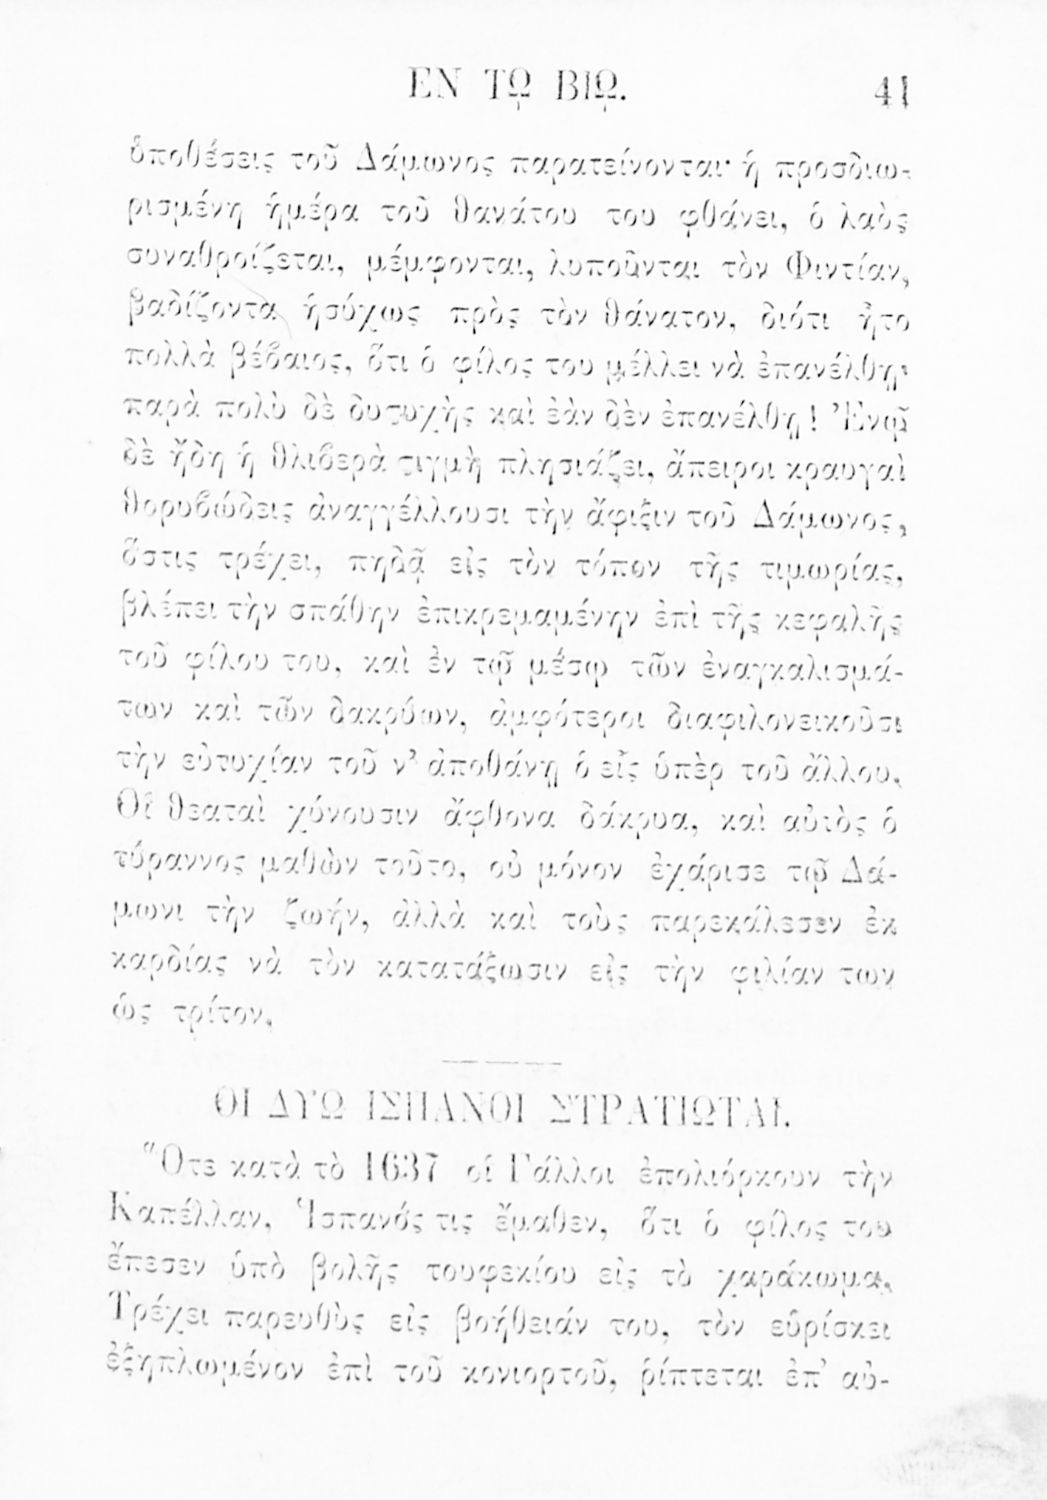 ΕΝ Τῼ ΒΙῼ. 41
ὑποθέσεις τοῦ Δάμωνος παρατείνονται· ἡ προσδιω-
ρισμένη ἡμέρα τοῦ θανάτου του φθάνει, ὁ λαὸς
συναθροίζεται, μέμφονται, λυποῦνται τὸν Φιντίαν,
βαδίζοντα ἡσύχως πρὸς τὸν θάνατον, διότι ἦτο
πολλὰ βέβαιος, ὅτι ὁ φίλος του μέλλει νὰ ἐπανέλθῃ·
παρὰ πολὺ δὲ δυςυχὴς καὶ ἐὰν δὲν ἐπανέλθῃ! Ἐνῷ
δὲ ἤδη ἡ θλιβερὰ ςιγμὴ πλησιάζει, ἄπειροι κραυγαὶ
θορυβώδεις ἀναγγέλλουσι τὴν ἄφιξιν τοῦ Δάμωνος,
ὅστις τρέχει, πηδᾷ εἰς τὸν τόπον τῆς τιμωρίας,
βλέπει τὴν σπάθην ἐπικρεμαμένην ἐπὶ τῆς κεφαλῆς
τοῦ φίλου του, καὶ ἐν τῷ μέσῳ τῶν ἐναγκαλισμά-
των καὶ τῶν δακρύων, ἀμφότεροι διαφιλονεικοῦσι
τὴν εὐτυχίαν τοῦ ν’ ἀποθάνῃ ὁ εἷς ὑπὲρ τοῦ ἄλλου.
Οἱ θεαταὶ χύνουσιν ἄφθονα δάκρυα, καὶ αὐτὸς ὁ
τύραννος μαθὼν τοῦτο, οὐ μόνον ἐχάρισε τῷ Δά-
μωνι τὴν ζωήν, ἀλλὰ καὶ τοὺς παρεκάλεσεν ἐκ
καρδίας νὰ τὸν κατατάξωσιν εἰς τὴν φιλίαν των
ὡς τρίτον.
ΟΙ ΔΥΩ ΙΣΠΑΝΟΙ ΣΤΡΑΤΙΩΤΑΙ.
Ὅτε κατὰ τὸ 1637 οἱ Γάλλοι ἐπολιόρκουν τὴν
Καπέλλαν, Ἱσπανός τις ἔμαθεν, ὅτι ὁ φίλος του
ἔπεσεν ὑπὸ βολῆς τουφεκίου εἰς τὸ χαράκωμα.
Τρέχει παρευθὺς εἰς βοήθειάν του, τὸν εὑρίσκει
ἐξηπλωμένον ἐπὶ τοῦ κονιορτοῦ, ῥίπτεται ἐπ’ αὐ-